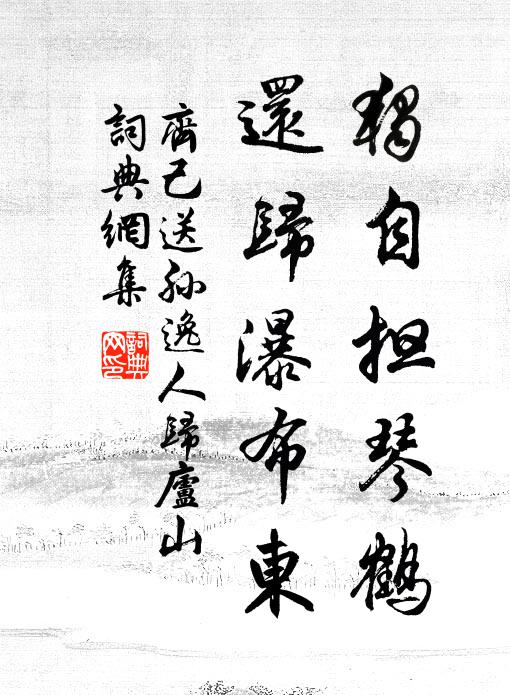 獨自担琴鶴
還歸瀑布東
齊己送孙逸人歸廬山
詞典網集
詞典
网印